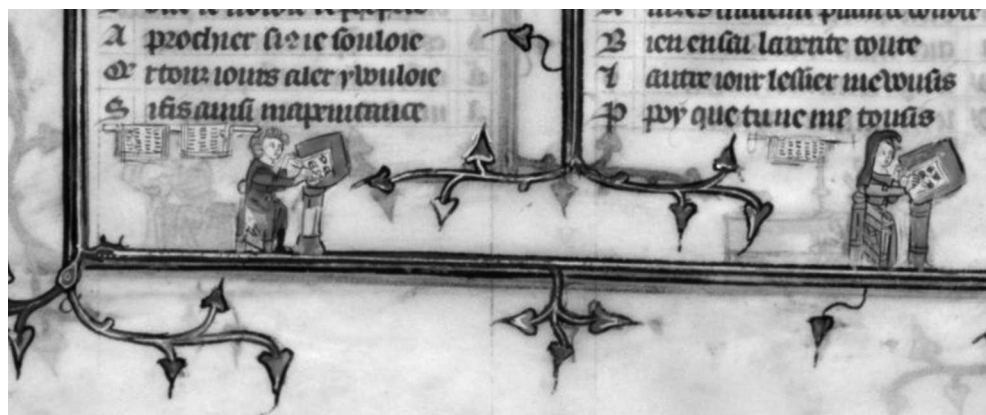 A prochier si ꝯ ie souloie
Et touz iours aler y vouloie
S i fis ainsi ma penitance
B ien en sai la verite toute
L autre iour lessier me vousis
P poy que tu ne me tousis